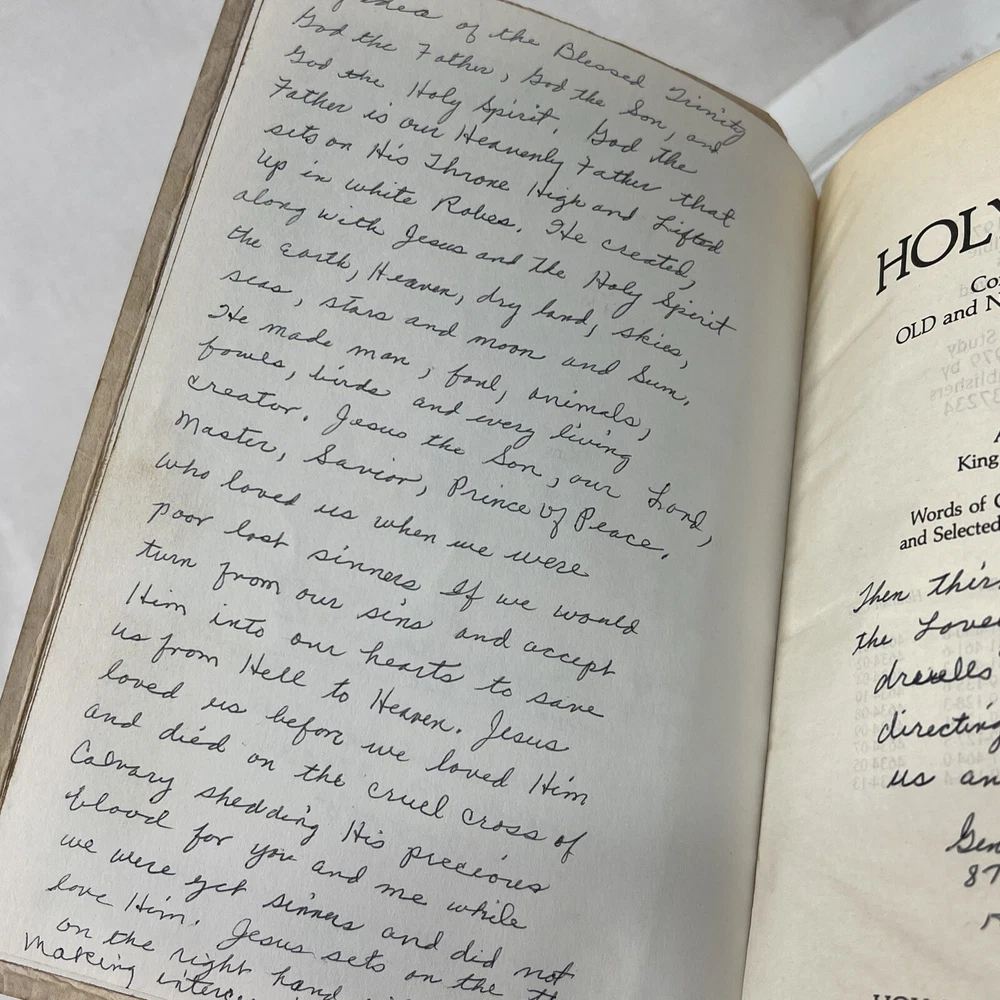 idea of the Blessed Trinity
God the Father, God the Son, and
God the Holy Spirit. God the
Father is our Heavenly Father that
sets on His Throne High and Lifted
up in white Robes. He created,
along with Jesus and the Holy Spirit
the Earth, Heaven, dry land, skies,
seas, stars and moon and Sun.
He made man, foul, animals,
fowls, birds and every living
creator. Jesus the Son, our Lord,
Master, Savior, Prince of Peace,
who loved us when we were
poor lost sinners If we would
turn from our sins and accept
Him into our hearts to save
us from Hell to Heaven. Jesus
loved us before we loved Him
and died on the cruel cross of
Calvary shedding His precious
blood for you and me while
we were yet sinners and did not
love Him. Jesus sets on the
on the right hand
making
HOLY
OLD and N
Study
by
37234
King
Words of
and Selected
Then
the
directing
us an
Gen
87